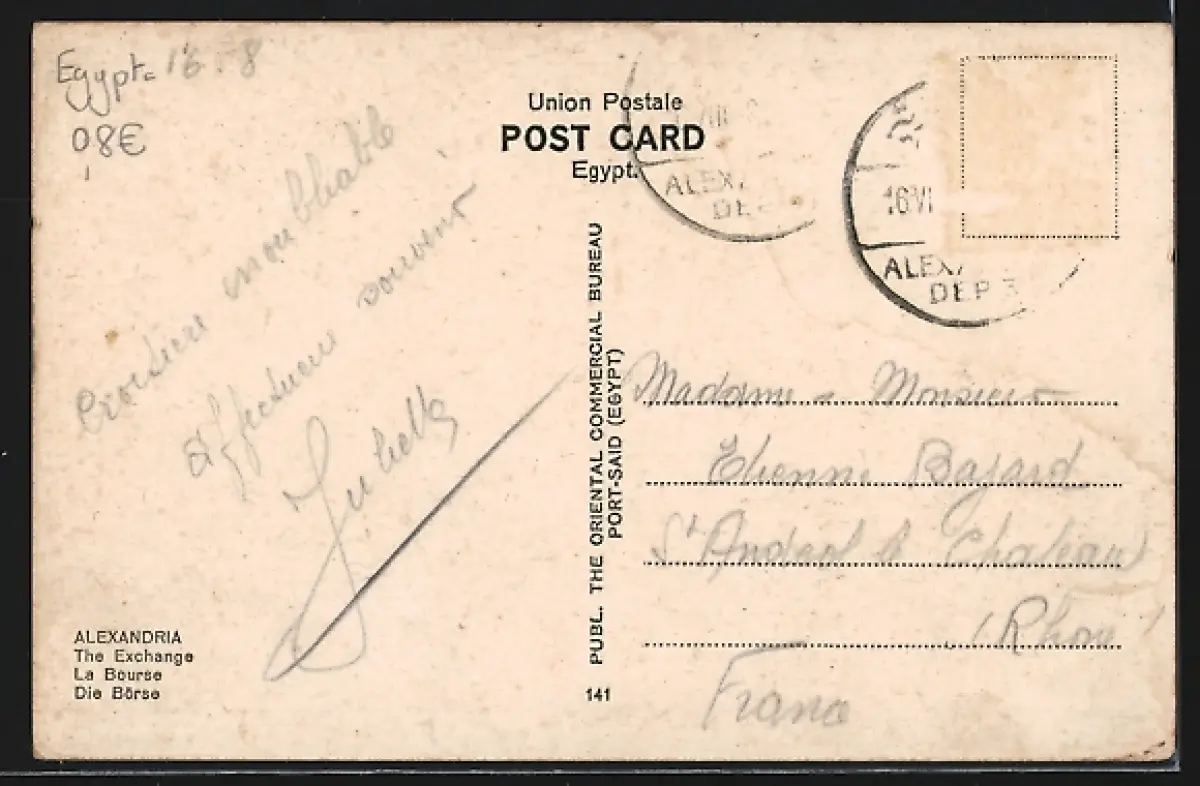 Egypt. 16.8
0,8€
Union Postale
POST CARD
Egypt.
ALEX
DE
16 VI
ALEX
DEP 3
Croisière inoubliable
Affectueux souvenir
PUBL. THE ORIENTAL COMMERCIAL BUREAU
PORT-SAID (EGYPT)
Madame Monsieur
Etienne Bajard
St Andéol le Chateau
(Rhône)
France
ALEXANDRIA
The Exchange
La Bourse
Die Börse
141